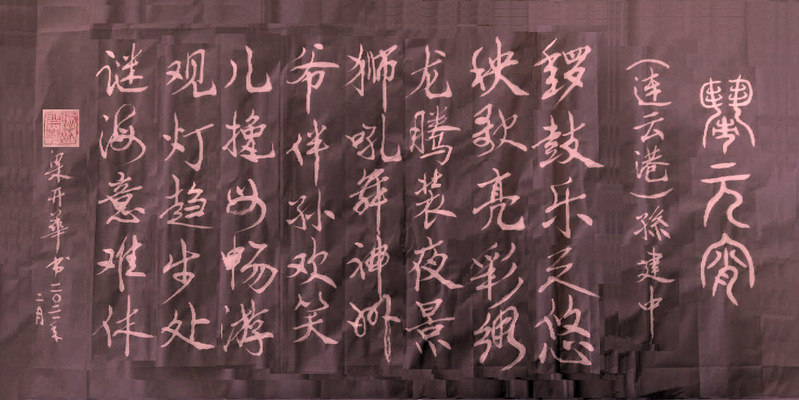 鬧元宵
（连云港）孫建中
锣鼓乐之悠
秧歌亮彩绸
龙腾装夜景
狮吼舞神州
爷伴孙欢笑
儿搀母畅游
观灯趋步处
谜海意难休
梁丹華书二〇二一年
二月